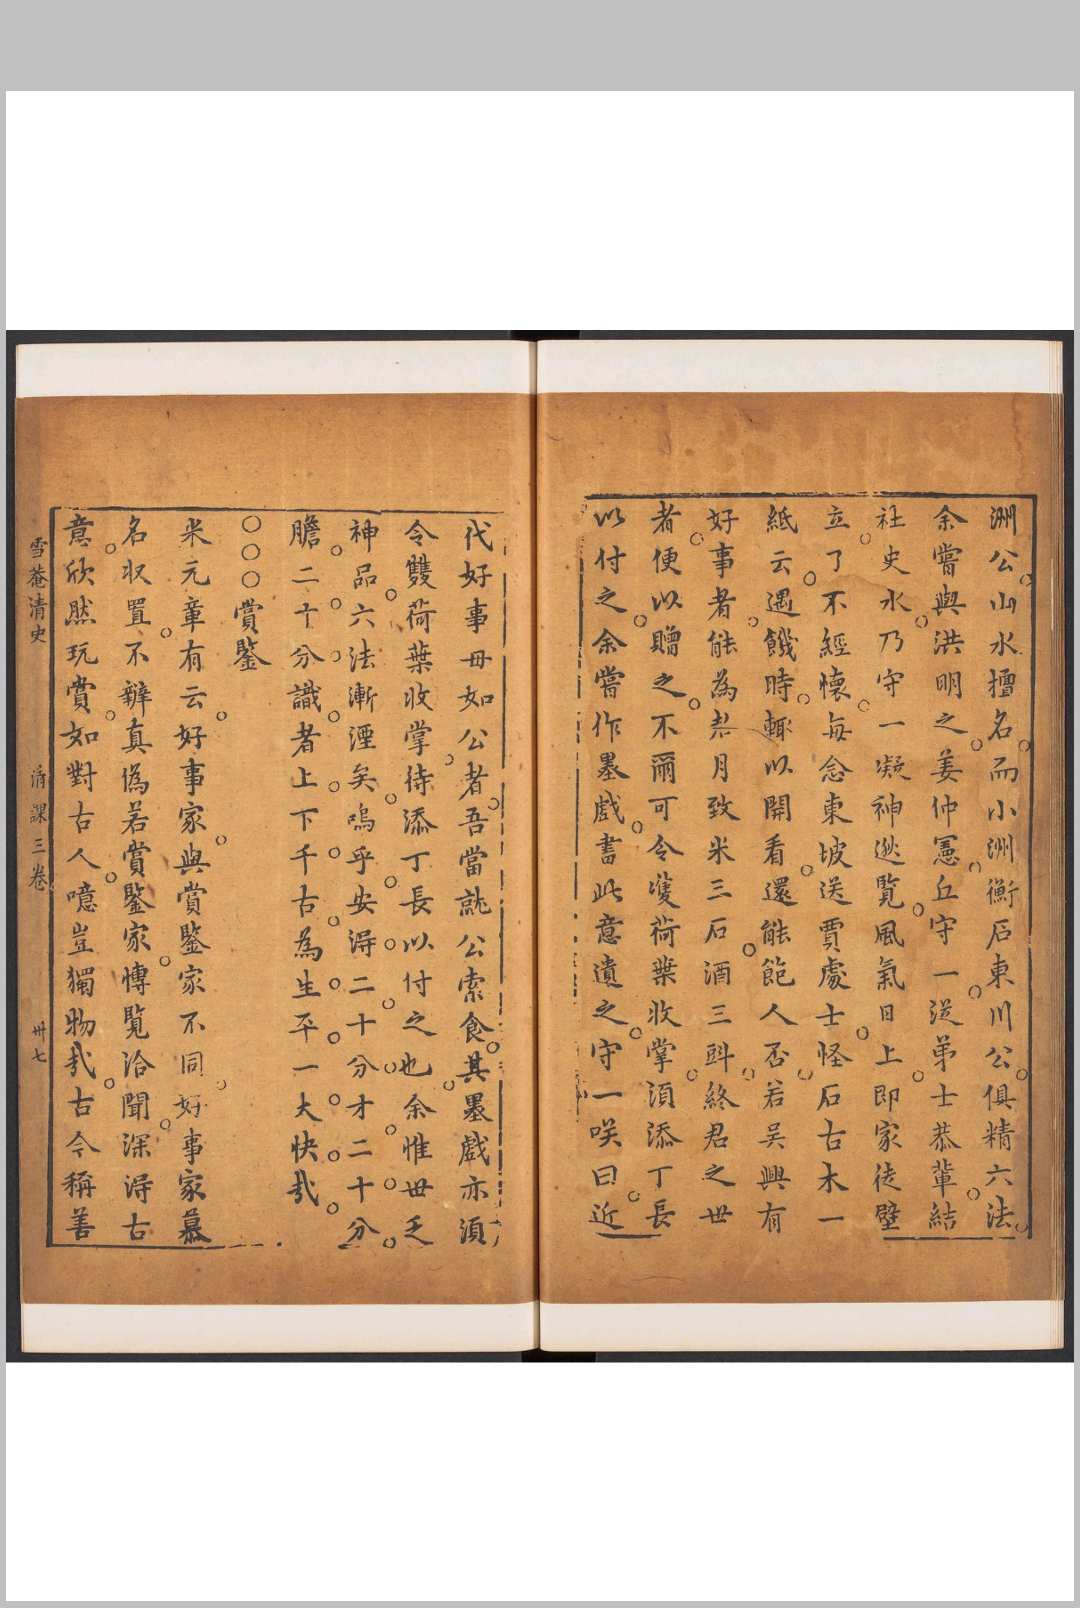 洲公山水擅名而小洲衡石東川公俱精六法
余嘗與洪明之姜仲憲丘守一從弟士恭輩結
社史水乃守一凝神逖覽風氣日上即家徒壁
立了不經懷每念東坡送賈處士怪石古木一
紙云遇饑時輙以開看還能飽人否若吴興有
好事者能為君月致米三石酒三㪷終君之世
者便以贈之不爾可令雙荷葉收掌須添丁長
以付之余嘗作墨戲書此意遺之守一咲曰近
代好事毋如公者吾當就公索食其墨戲亦須
令雙荷葉收掌待添丁長以付之也余惟世乏
神品六法漸湮矣嗚乎安淂二十分才二十分
膽二十分識者上下千古為生平一大快㢤
〇〇〇賞鑒
米元章有云好事家與賞鑒家不同好事家慕
名収置不辨真偽若賞鑒家博覧洽聞深淂古
意欣然玩賞如對古人噫豈獨物㢤古今稱善
雪菴清史
清課三卷
卅七